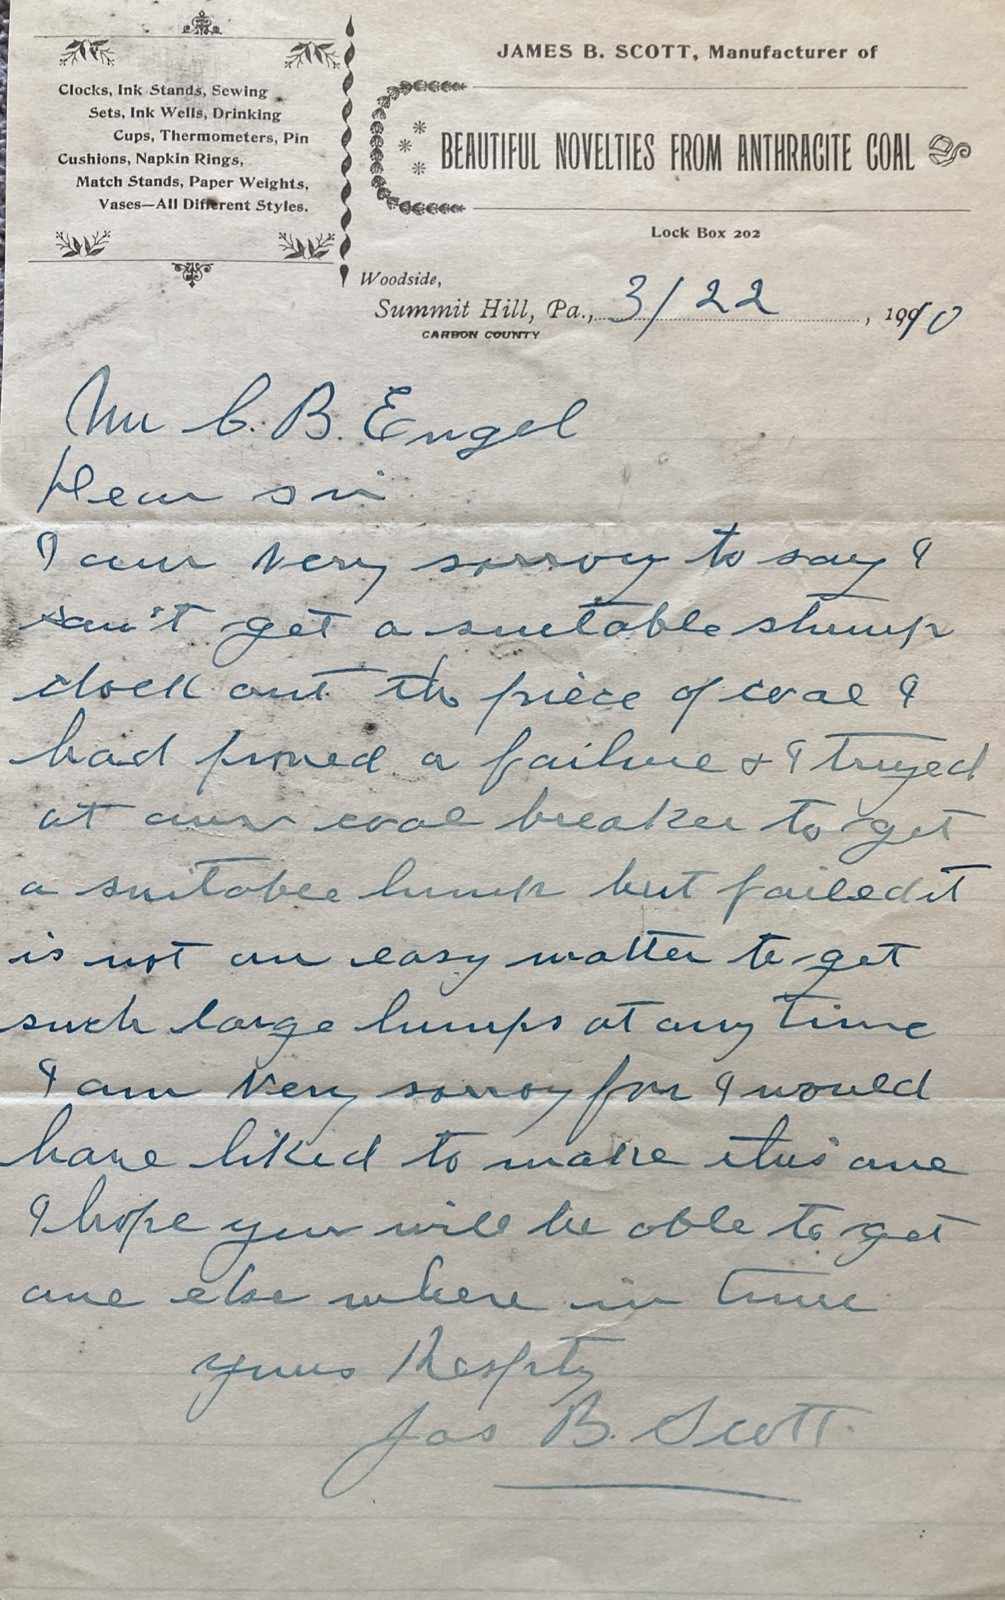 Clocks, Ink Stands, Sewing
Sets, Ink Wells, Drinking
Cups, Thermometers, Pin
Cushions, Napkin Rings,
Match Stands, Paper Weights,
Vases—All Different Styles.
JAMES B. SCOTT, Manufacturer of
BEAUTIFUL NOVELTIES FROM ANTHRACITE COAL
Lock Box 202
Woodside,
Summit Hill, Pa., 3/22, 1910
CARBON COUNTY
Mr C. B. Engel
Dear sir
I am very sorroy to say I
can't get a suetable stump
clock out the piece of coal I
had proved a failure & I tryed
at our coal breaker to get
a suitabee lump but failed it
is not an easy matter to get
such large lumps at any time
I am very sorroy for I would
have liked to make this one
I hope you will be able to get
one else where in time
yours Respty
Jas B. Scott.